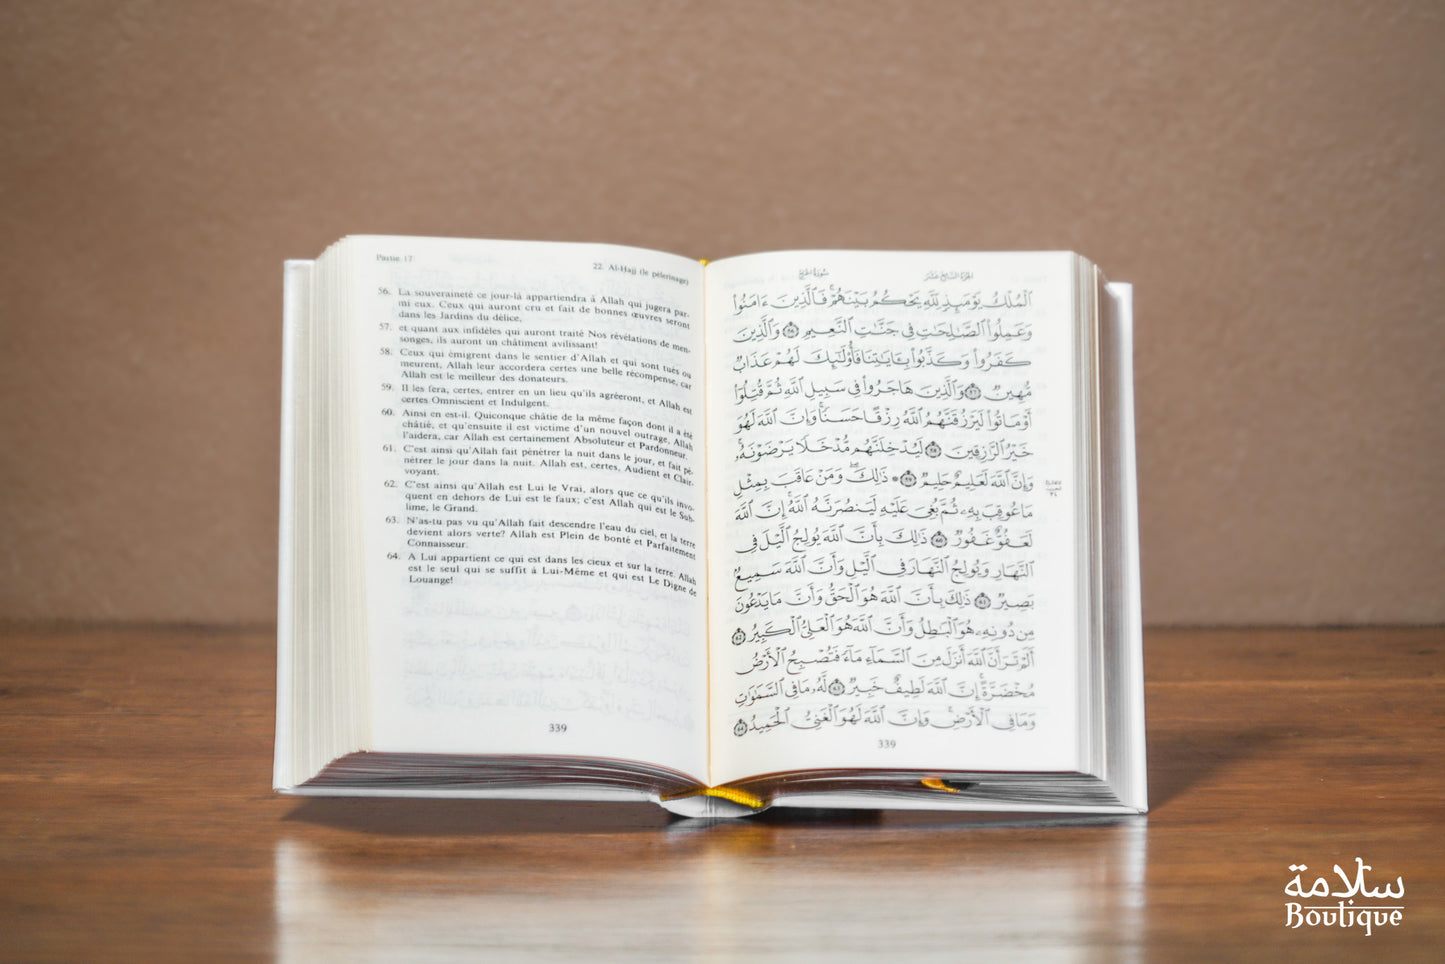 Partie 17
22. Al-Hajj (le pèlerinage)
56. La souveraineté ce jour-là appartiendra à Allah qui jugera par-
mi eux. Ceux qui auront cru et fait de bonnes œuvres seront
dans les Jardins du délice,
57. et quant aux infidèles qui auront traité Nos révélations de men-
songes, ils auront un châtiment avilissant!
58. Ceux qui émigrent dans le sentier d'Allah et qui sont tués ou
meurent, Allah leur accordera certes une belle récompense, car
Allah est le meilleur des donateurs.
59. Il les fera, certes, entrer en un lieu qu'ils agréeront, et Allah est
certes Omniscient et Indulgent.
60. Ainsi en est-il. Quiconque châtie de la même façon dont il a été
châtié, et qu'ensuite il est victime d'un nouvel outrage, Allah
l'aidera, car Allah est certainement Absoluteur et Pardonneur.
61. C'est ainsi qu'Allah fait pénétrer la nuit dans le jour, et fait pé-
nétrer le jour dans la nuit. Allah est, certes, Audient et Clair-
voyant.
62. C'est ainsi qu'Allah est Lui le Vrai, alors que ce qu'ils invo-
quent en dehors de Lui est le faux; c'est Allah qui est le Sub-
lime, le Grand.
63. N'as-tu pas vu qu'Allah fait descendre l'eau du ciel, et la terre
devient alors verte? Allah est Plein de bonté et Parfaitement
Connaisseur.
64. A Lui appartient ce qui est dans les cieux et sur la terre. Allah
est le seul qui se suffit à Lui-Même et qui est Le Digne de
Louange!
339
سُورَةُ الحَجِّ
الجُزْءُ السَّابِعَ عَشَرَ
ٱلْمُلْكُ يَوْمَئِذٍ لِّلَّهِ يَحْكُمُ بَيْنَهُمْ ۚ فَٱلَّذِينَ ءَامَنُوا۟
وَعَمِلُوا۟ ٱلصَّـٰلِحَـٰتِ فِى جَنَّـٰتِ ٱلنَّعِيمِ ٥٦ وَٱلَّذِينَ
كَفَرُوا۟ وَكَذَّبُوا۟ بِـَٔايَـٰتِنَا فَأُو۟لَـٰٓئِكَ لَهُمْ عَذَابٌ
مُّهِينٌ ٥٧ وَٱلَّذِينَ هَاجَرُوا۟ فِى سَبِيلِ ٱللَّهِ ثُمَّ قُتِلُوٓا۟
أَوْ مَاتُوا۟ لَيَرْزُقَنَّهُمُ ٱللَّهُ رِزْقًا حَسَنًا ۚ وَإِنَّ ٱللَّهَ لَهُوَ
خَيْرُ ٱلرَّٰزِقِينَ ٥٨ لَيُدْخِلَنَّهُم مُّدْخَلًا يَرْضَوْنَهُۥ ۗ
وَإِنَّ ٱللَّهَ لَعَلِيمٌ حَلِيمٌ ٥٩ ۞ ذَٰلِكَ وَمَنْ عَاقَبَ بِمِثْلِ
مَا عُوقِبَ بِهِۦ ثُمَّ بُغِىَ عَلَيْهِ لَيَنصُرَنَّهُ ٱللَّهُ ۗ إِنَّ ٱللَّهَ
لَعَفُوٌّ غَفُورٌ ٦٠ ذَٰلِكَ بِأَنَّ ٱللَّهَ يُولِجُ ٱلَّيْلَ فِى
ٱلنَّهَارِ وَيُولِجُ ٱلنَّهَارَ فِى ٱلَّيْلِ وَأَنَّ ٱللَّهَ سَمِيعٌۢ
بَصِيرٌ ٦١ ذَٰلِكَ بِأَنَّ ٱللَّهَ هُوَ ٱلْحَقُّ وَأَنَّ مَا يَدْعُونَ
مِن دُونِهِۦ هُوَ ٱلْبَـٰطِلُ وَأَنَّ ٱللَّهَ هُوَ ٱلْعَلِىُّ ٱلْكَبِيرُ ٦٢
أَلَمْ تَرَ أَنَّ ٱللَّهَ أَنزَلَ مِنَ ٱلسَّمَآءِ مَآءً فَتُصْبِحُ ٱلْأَرْضُ
مُخْضَرَّةً ۗ إِنَّ ٱللَّهَ لَطِيفٌ خَبِيرٌ ٦٣ لَّهُۥ مَا فِى ٱلسَّمَـٰوَٰتِ
وَمَا فِى ٱلْأَرْضِ ۗ وَإِنَّ ٱللَّهَ لَهُوَ ٱلْغَنِىُّ ٱلْحَمِيدُ ٦٤
339
سلامة
Boutique